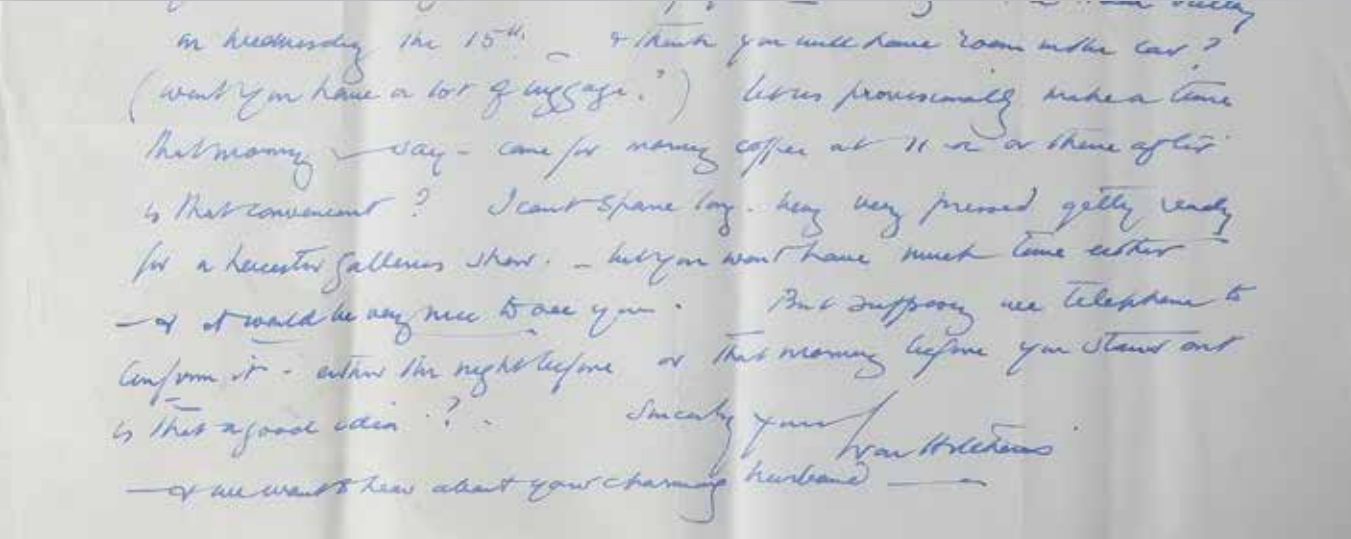 on Wednesday the 15th. — & think you will have room in the car?
(wont you have a lot of luggage?") Let us provisionally make a time
that morning — say — come for morning coffee at 11 or or there after
is that convenient? I cant spare long. very very pressed getting ready
for a Leicester Galleries show. — but you wont have much time either
— & it would be very nice to see you. But supposing we telephone to
confirm it - either the night before or that morning before you start out
is that a good idea?. Sincerely yours Ivon Hitchens
— & we want to hear about your charming husband —